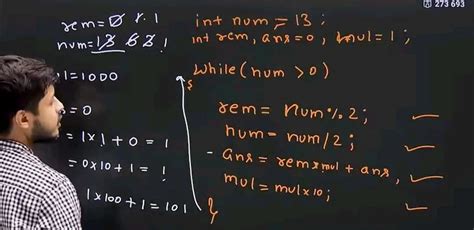 273 693
rem = 0 1
num = 13 6 3 1
l = 1000
= 0
= 1 x 1 + 0 = 1
= 0 x 10 + 1 = 1
1 x 100 + 1 = 101
int num = 13;
int rem, ans = 0, mul = 1;
while (num > 0)
{
rem = num % 2;
num = num / 2;
ans = rem * mul + ans,
mul = mul x 10;
}